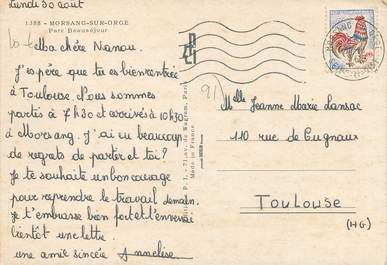 Lundi 30 août
1388 - MORSANG-SUR-ORGE
Parc Beauséjour
Ma chère Nanou.
J'espère que tu es bien rentrée
à Toulouse. Nous sommes
partis à 7h30 et arrivés à 10h30
à Morsang. J'ai eu beaucoup
de regrets de partir et toi?
Je te souhaite un bon courage
pour reprendre le travail demain.
Je t'embrasse bien fort et t'enverrai
bientôt une lettre.
une amie sincère Annelise
91
Made in France
Melle Jeanne Marie Lansac
110 rue de Cugnaux
Toulouse
(HG)